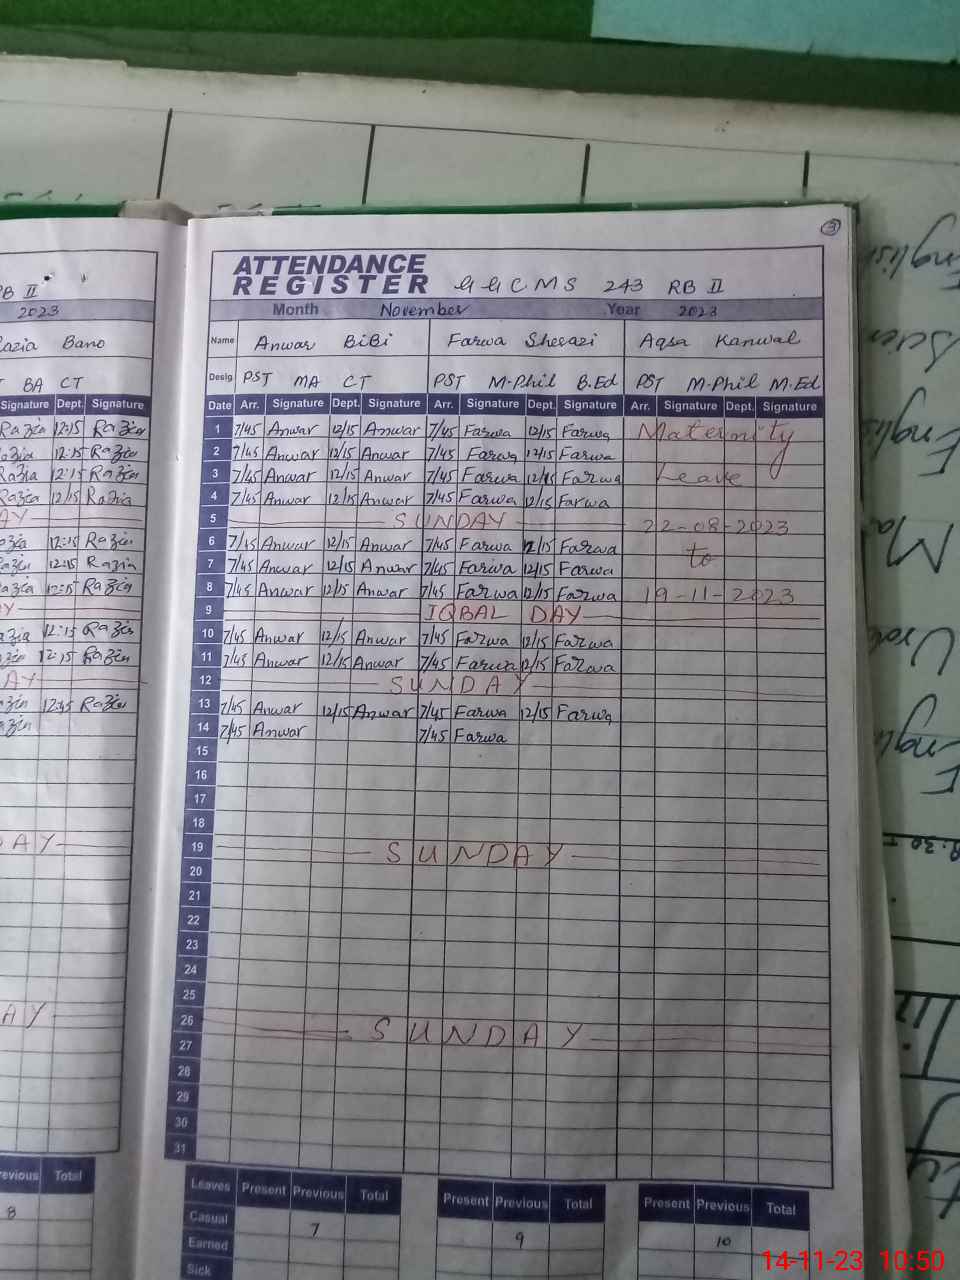 3
ATTENDANCE
REGISTER GGCMS 243 RB II
Month November Year 2023
Name Anwar BiBi Farwa Sherazi Aqsa Kanwal
Desig. PST MA CT PST M-Phil B.Ed PST M-Phil M.Ed
Date Arr. Signature Dept. Signature Arr. Signature Dept. Signature Arr. Signature Dept. Signature
1 7/45 Anwar 12/15 Anwar 7/45 Farwa 12/15 Farwa Maternity
2 7/45 Anwar 12/15 Anwar 7/45 Farwa 12/15 Farwa
3 7/45 Anwar 12/15 Anwar 7/45 Farwa 12/45 Farwa Leave
4 7/45 Anwar 12/15 Anwar 7/45 Farwa 12/15 Farwa
5 SUNDAY 22-08-2023
6 7/45 Anwar 12/15 Anwar 7/45 Farwa 12/15 Farwa to
7 7/45 Anwar 12/15 Anwar 7/45 Farwa 12/15 Farwa
8 7/45 Anwar 12/15 Anwar 7/45 Farwa 12/15 Farwa 19-11-2023
9 IQBAL DAY
10 7/45 Anwar 12/15 Anwar 7/45 Farwa 12/15 Farwa
11 7/45 Anwar 12/15 Anwar 7/45 Farwa 12/15 Farwa
12 SUNDAY
13 7/45 Anwar 12/15 Anwar 7/45 Farwa 12/15 Farwa
14 7/45 Anwar 7/45 Farwa
15
16
17
18
19 SUNDAY
20
21
22
23
24
25
26 SUNDAY
27
28
29
30
31
Leaves Present Previous Total Present Previous Total Present Previous Total
Casual 7 9 10
Earned
Sick
RB II
2023
Razia Bano
BA CT
Signature Dept. Signature
Razia 12:15 Razia
Razia 12:15 Razia
Razia 12:15 Razia
Razia 12/15 Razia
AY
Razia 12:15 Razia
Razia 12:15 Razia
Razia 12:15 Razia
AY
Razia 12:15 Razia
Razia 12:15 Razia
AY
Razia 12:45 Razia
Razia
DAY
AY
Previous Total
8
English
English
Urdu
14-11-23 10:50